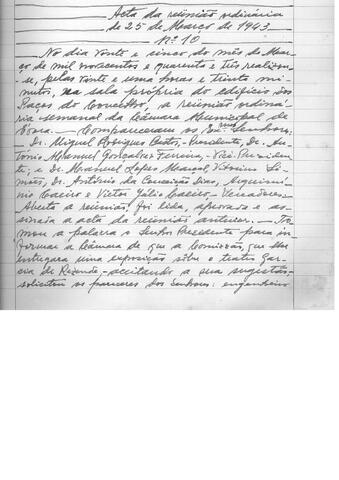 Acta da reünião ordinária
de 25 de Março de 1943
Nº 10
No dia vinte e cinco do mês de Mar-
ço de mil novecentos e quarenta e três realizou-
se, pelas vinte e uma horas e trinta mi-
nutos, na sala própria do edifício dos
Paços do Concelho, a reünião ordiná-
ria semanal da Câmara Municipal de
Évora. — Compareceram os Ex.mos Senhores,
Dr. Miguel Rodrigues Bastos, - Presidente, Dr. An-
tónio Manuel Gonçalves Ferreira, - Vice-Presiden-
te, e Dr. Manuel Lopes Marçal, Vitorino Si-
mões, Dr. António da Conceição Dias,
nio Caeiro e Victor Júlio Caeiro - Vereadores.
Aberta a reünião foi lida, aprovada e as-
sinada a acta da reünião anterior. — To-
mou a palavra o Senhor Presidente para in-
formar a Câmara de que a Comissão, que lhe
entregara uma exposição sôbre o teatro Gar-
cia de Rezende, - aceitando a sua sugestão -
solicitou os pareceres dos Senhores: engenheiro